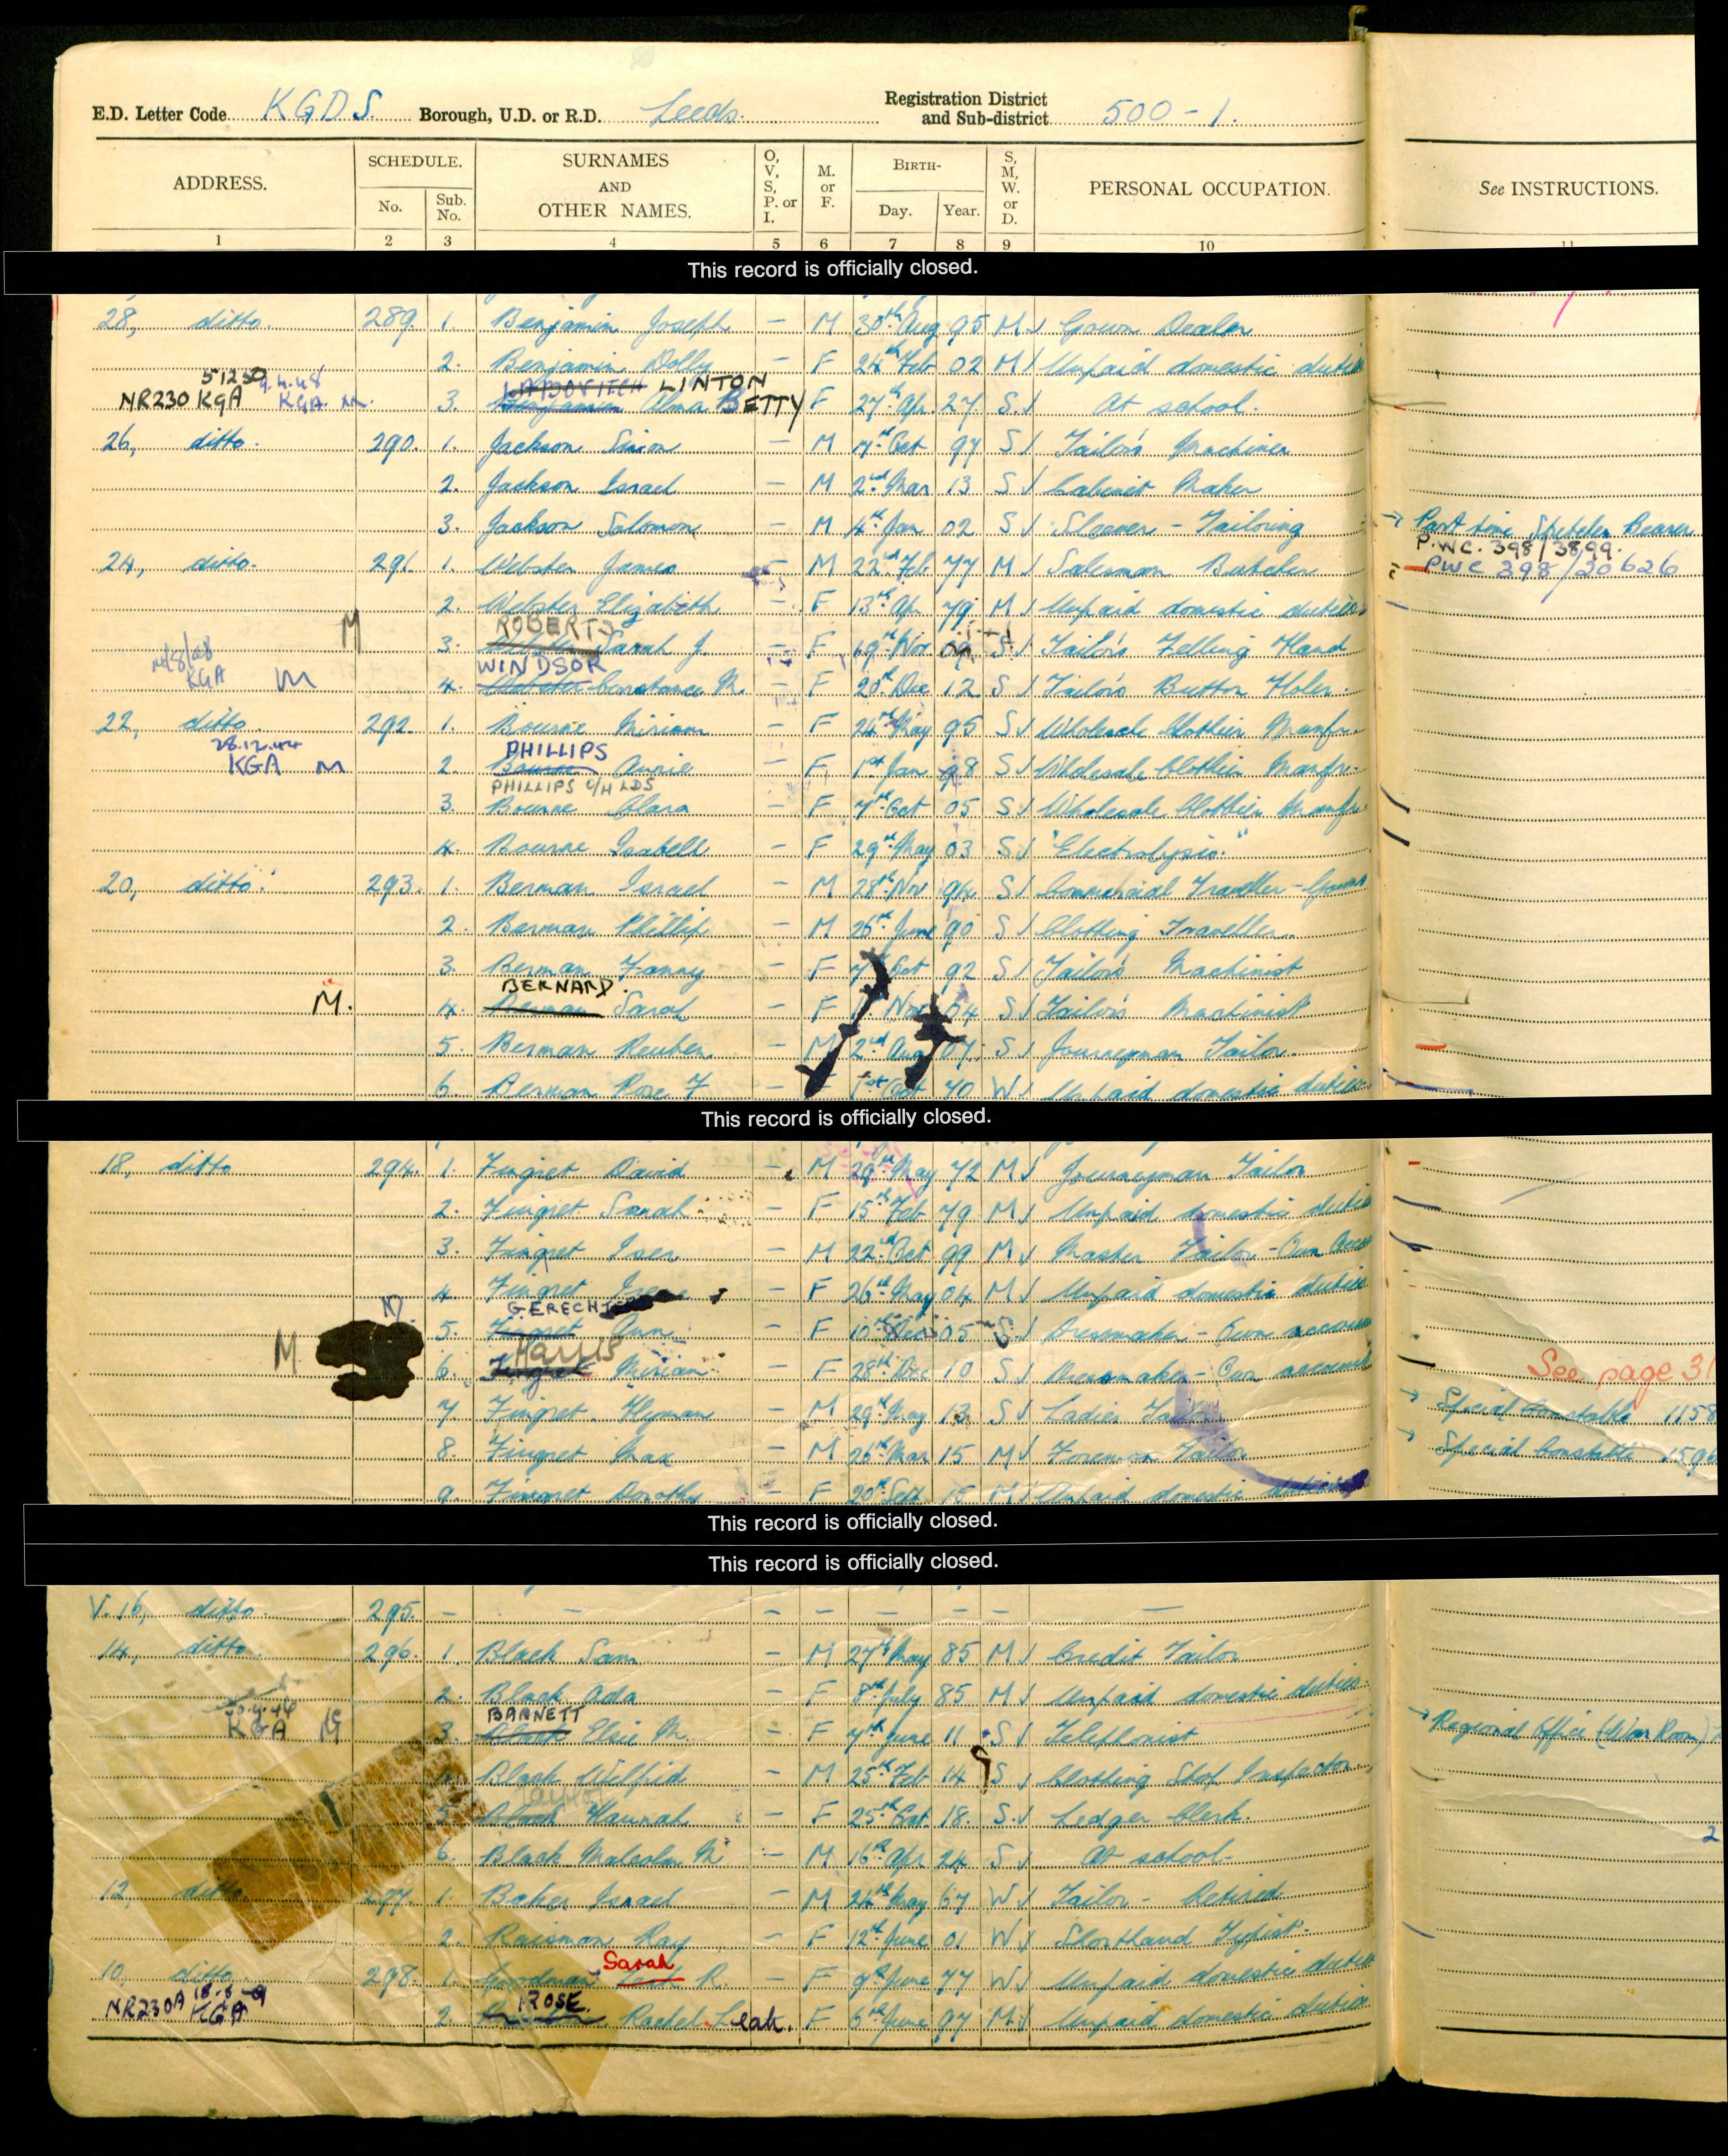 E.D. Letter Code KGDS. Borough, U.D. or R.D. Leeds. Registration District and Sub-district 500-1.
ADDRESS. SCHEDULE. No. Sub. No. SURNAMES AND OTHER NAMES. O, V, S, P. or I. M. or F. BIRTH- Day. Year. S, M, W. or D. PERSONAL OCCUPATION. See INSTRUCTIONS.
1 2 3 4 5 6 7 8 9 10 11
This record is officially closed.
28, ditto. 289. 1. Benjamin Joseph - M 30th Aug 95 M Gown Dealer
2. Benjamin Dolly - F 24th Feb 02 M Unpaid domestic duties
51250 9.4.48
LINTON
NR230 KGA KGA. M. 3. Benjamin Alma BETTY F 27th Apr 27 S. At school.
26, ditto. 290. 1. Jackson Simon - M Oct 97 S Tailor's Machiner
2. Jackson Israel - M 2nd Mar 13 S Cabinet Maker
3. Jackson Solomon - M 4th Jan 02 S Sleever - Tailoring → Part time Stretcher Bearer
P.W.C. 398/3899.
24, ditto. 291. 1. Webster James M 22nd Feb 77 M Salesman Butcher PWC 398/20626
2. Webster Elizabeth - F 13th Apr 79 M Unpaid domestic duties
ROBERTS
M 3. Webster Sarah J. - F 19th Nov 09 S Tailor's Felling Hand
WINDSOR
KGA M 4. Webster Constance M. - F 20th Dec 12 S Tailor's Button Holer.
22, ditto 292. 1. Bourne Miriam - F 24th May 95 S Wholesale Clothier Manfr.
28.12.44
PHILLIPS
KGA M 2. Bourne Annie - F 1st Jan 98 S Wholesale Clothier Manfr.
PHILLIPS C/H LDS
3. Bourne Clara - F 7th Oct 05 S Wholesale Clothier Manfr.
4. Bourne Isabell - F 29th May 03 S "Electrolysis."
20, ditto. 293. 1. Berman Israel - M 28th Nov 94 S Commercial Traveller - Gowns
2. Berman Phillip - M 25th June 90 S Clothing Traveller.
3. Berman Fanny - F 7th Oct 92 S Tailor's Machinist
BERNARD.
M. 4. Berman Sarah - F Nov 04 S Tailor's Machinist
5. Berman Reuben - M 2nd Aug 07. S Journeyman Tailor.
6. Berman Rose F - 1st Oct 70 W Unpaid domestic duties
This record is officially closed.
18, ditto 294. 1. Fingret David - M 29th May 72 M Journeyman Tailor
2. Fingret Sarah - F 15th Feb 79 M Unpaid domestic duties
3. Fingret Iser - M 22nd Oct 99 M Master Tailor - Own Account
4. Fingret - F 26th May 04 M Unpaid domestic duties
GERECHT
M 5. Fingret Ann - F 10th Dec 05 S Dressmaker - Own account
HARRIS
M 6. Fingret Miriam - F 28th Dec 10 S Dressmaker - Own account See page 31
7. Fingret Hyman - M 29th May 13 S Ladies Tailor → Special Constable 1158
8. Fingret Max - M 26th Mar 15 M Foreman Tailor → Special Constable 1596
9. Fingret Dorothy - F 20th Sept 15 M Unpaid domestic duties
This record is officially closed.
This record is officially closed.
V. 16, ditto. 295. - - - - - - - -
14, ditto. 296. 1. Black Sam - M 27th May 85 M Credit Tailor
2. Black Ada - F 8th July 85 M Unpaid domestic duties.
BARNETT
KGA 3. Black Elsie M. - F 7th June 11 S Telephonist → Regional Office (War Room)
Black Wilfrid - M 25th Feb 14 S Clothing Shop Inspector.
Taylor
5. Black Hannah - F 25th Oct. 18. S. Ledger Clerk.
6. Black Malcolm M - M 16th Apr 24 S At school. 2
12, ditto 297. 1. Baker Israel - M 24th May 67 W Tailor - Retired
2. Raisman Ray - F 12th June 01 W Shorthand Typist.
Sarah
10, ditto. 298. 1. Goodman R. - F 9th June 77 W Unpaid domestic duties
ROSE.
NR230A KGA 2. Rachel Leah. F 6th June 97 M Unpaid domestic duties